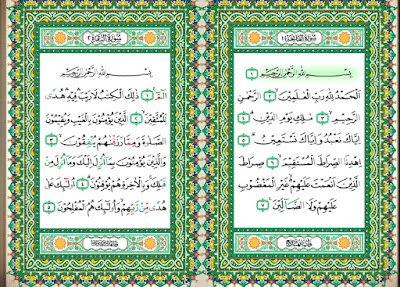 سُورَةُ الْفَاتِحَةِ ١
بِسْمِ اللهِ الرَّحْمٰنِ الرَّحِيْمِ ١
اَلْحَمْدُ لِلّٰهِ رَبِّ الْعٰلَمِيْنَ ٢ الرَّحْمٰنِ
الرَّحِيْمِ ٣ مٰلِكِ يَوْمِ الدِّيْنِ ٤
اِيَّاكَ نَعْبُدُ وَاِيَّاكَ نَسْتَعِيْنُ ٥
اِهْدِنَا الصِّرَاطَ الْمُسْتَقِيْمَ ٦ صِرَاطَ
الَّذِيْنَ اَنْعَمْتَ عَلَيْهِمْ غَيْرِ الْمَغْضُوْبِ
عَلَيْهِمْ وَلَا الضَّآلِّيْنَ ٧
سُورَةُ الْبَقَرَةِ ٢
بِسْمِ اللهِ الرَّحْمٰنِ الرَّحِيْمِ
الٓمّٓ ١ ذٰلِكَ الْكِتٰبُ لَا رَيْبَ فِيْهِ هُدًى
لِّلْمُتَّقِيْنَ ٢ الَّذِيْنَ يُؤْمِنُوْنَ بِالْغَيْبِ وَيُقِيْمُوْنَ
الصَّلٰوةَ وَمِمَّا رَزَقْنٰهُمْ يُنْفِقُوْنَ ٣
وَالَّذِيْنَ يُؤْمِنُوْنَ بِمَآ اُنْزِلَ اِلَيْكَ وَمَآ اُنْزِلَ مِنْ
قَبْلِكَ وَبِالْاٰخِرَةِ هُمْ يُوْقِنُوْنَ ٤ اُولٰٓئِكَ عَلٰى
هُدًى مِّنْ رَّبِّهِمْ وَاُولٰٓئِكَ هُمُ الْمُفْلِحُوْنَ ٥